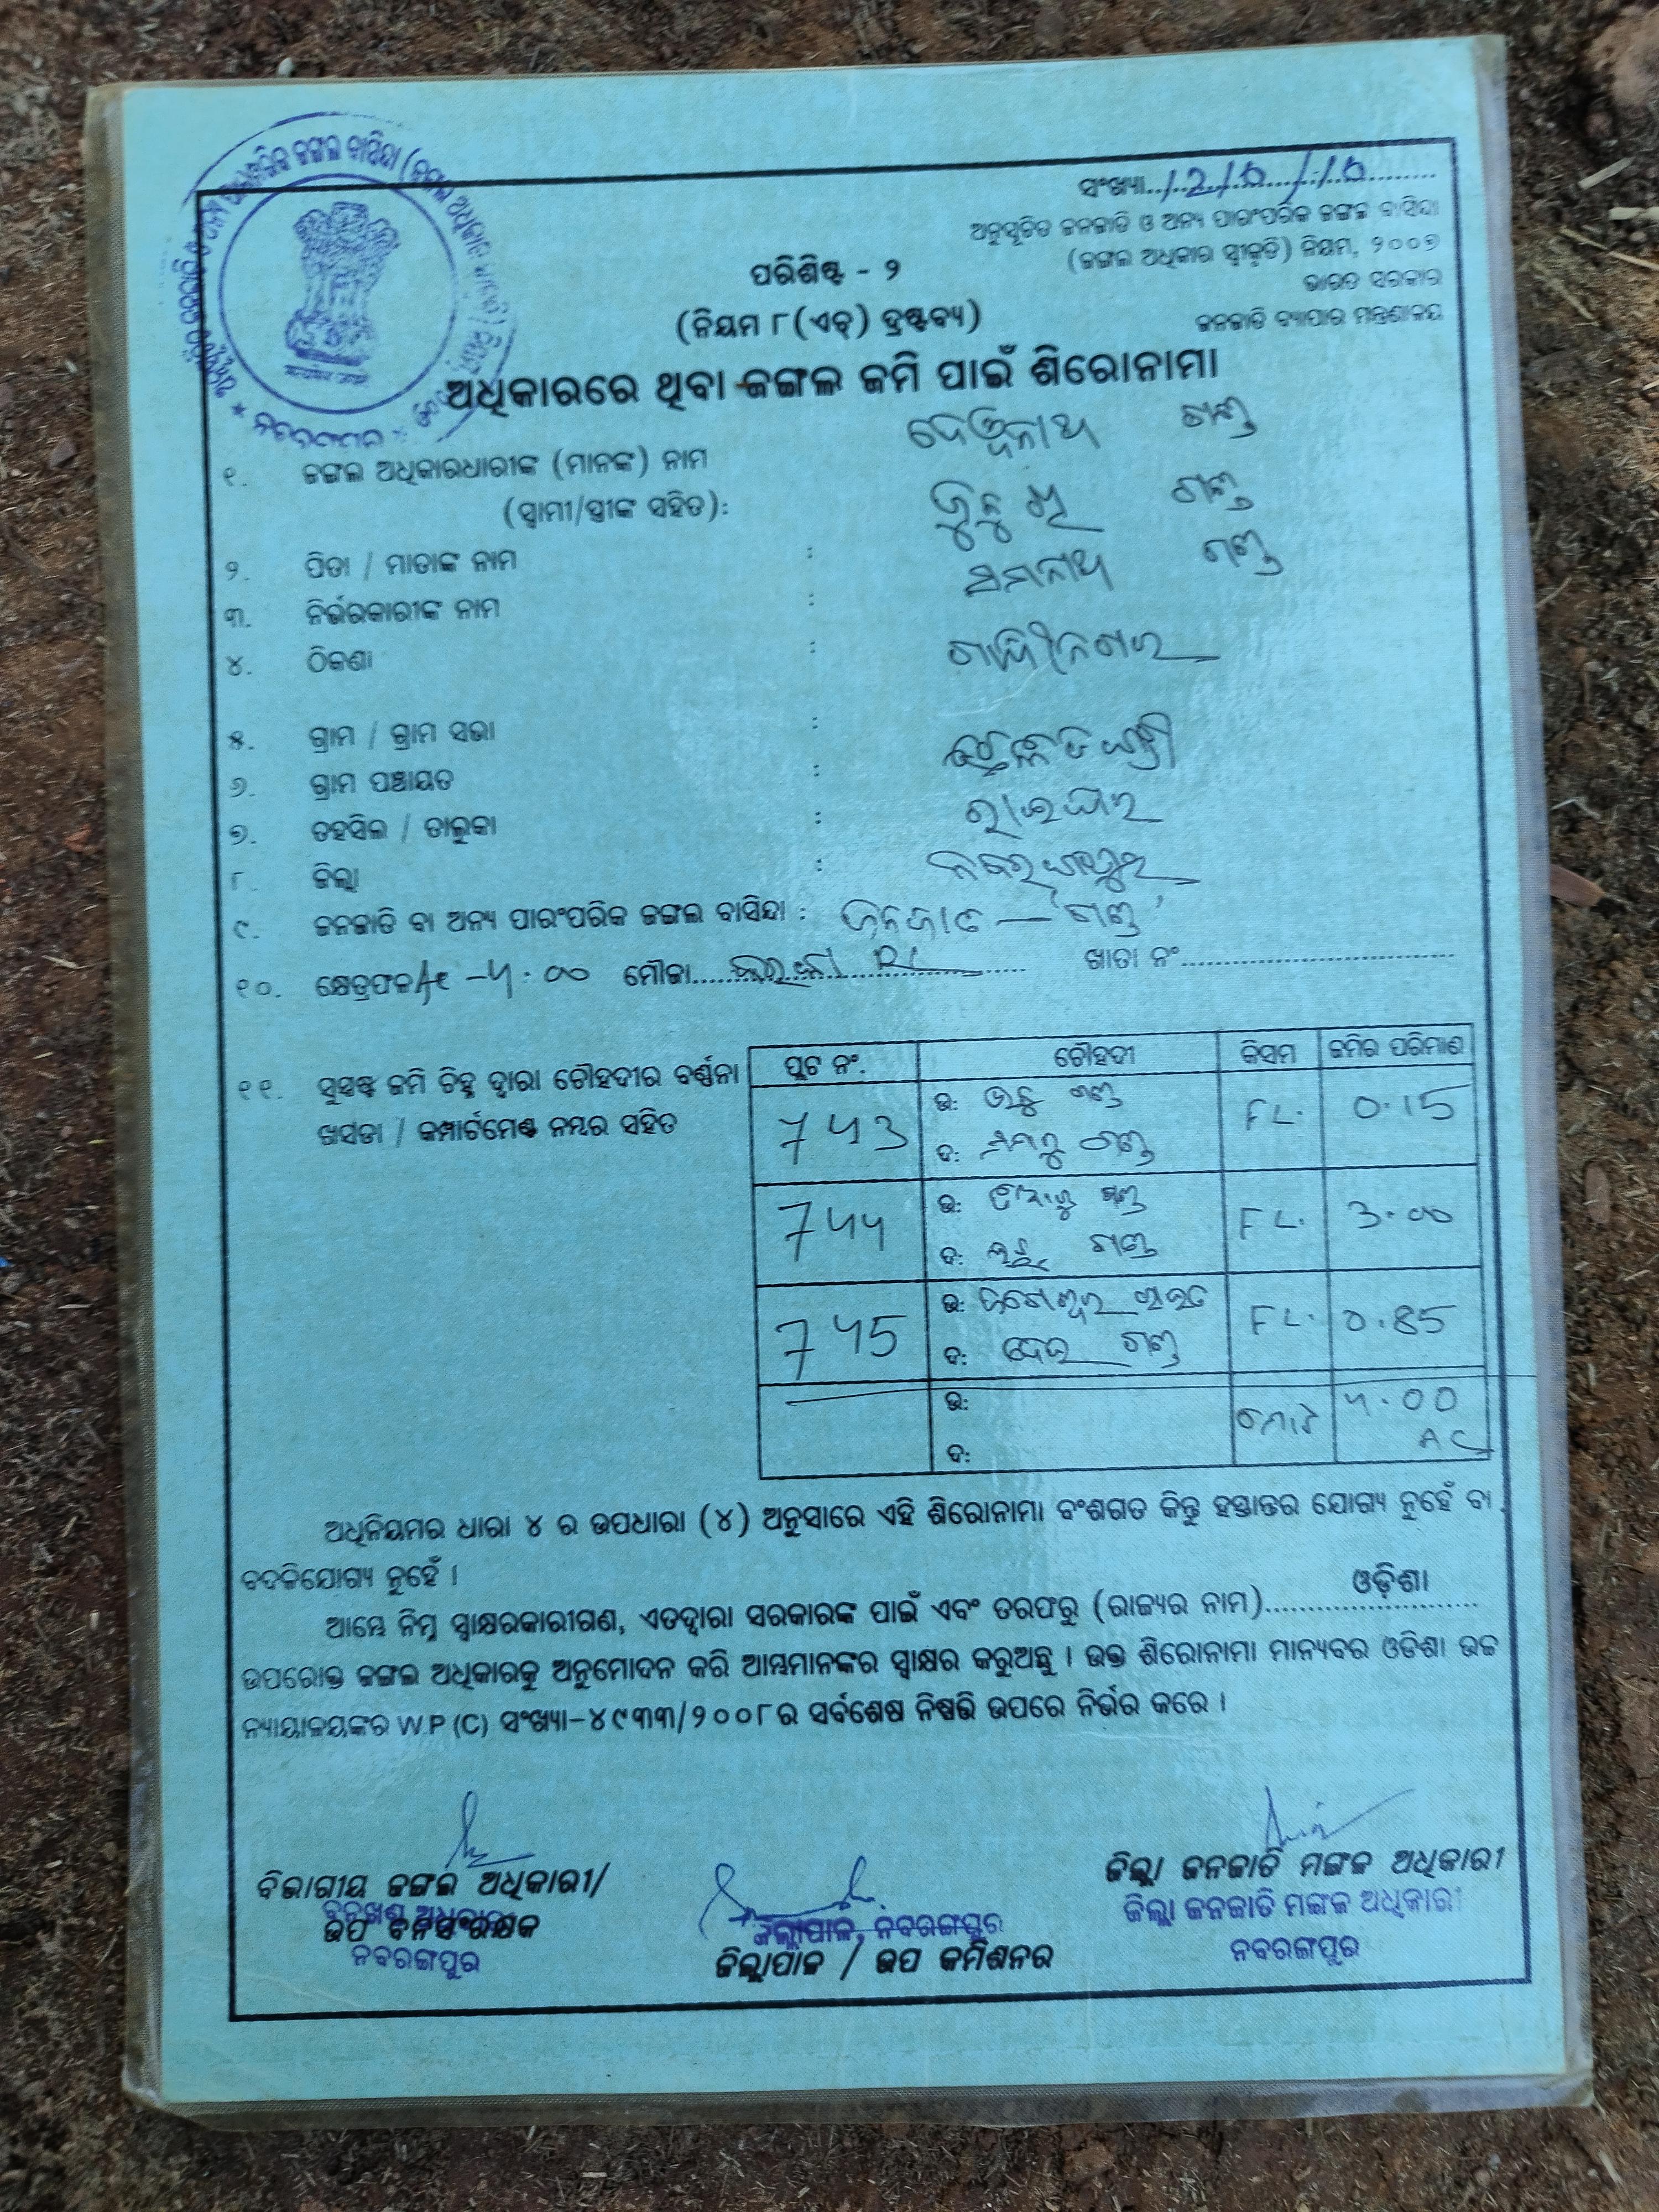 ସଂଖ୍ୟା...1210/10
ଅନୁସୂଚିତ ଜନଜାତି ଓ ଅନ୍ୟ ପାରଂପରିକ ଜଙ୍ଗଲ ବାସିନ୍ଦା
(ଜଙ୍ଗଲ ଅଧିକାର ସ୍ୱୀକୃତି) ନିୟମ, ୨୦୦୭
ଭାରତ ସରକାର
ଜନଜାତି ବ୍ୟାପାର ମନ୍ତ୍ରଣାଳୟ
ପରିଶିଷ୍ଟ - ୨
(ନିୟମ ୮(ଏଚ୍) ଦ୍ରଷ୍ଟବ୍ୟ)
ଅଧିକାରରେ ଥିବା ଜଙ୍ଗଲ ଜମି ପାଇଁ ଶିରୋନାମା
୧. ଜଙ୍ଗଲ ଅଧିକାରଧାରୀଙ୍କ (ମାନଙ୍କ) ନାମ ଦେଓନାଥ ଗଣ୍ଡ
(ସ୍ୱାମୀ/ସ୍ତ୍ରୀଙ୍କ ସହିତ): ଗଣ୍ଡ
୨. ପିତା / ମାତାଙ୍କ ନାମ : ଗଣ୍ଡ
୩. ନିର୍ଭରକାରୀଙ୍କ ନାମ :
୪. ଠିକଣା : ଗାନ୍ଧିନଗର
୫. ଗ୍ରାମ / ଗ୍ରାମ ସଭା :
୬. ଗ୍ରାମ ପଞ୍ଚାୟତ :
୭. ତହସିଲ / ତାଲୁକା : ରାଇଘର
୮. ଜିଲ୍ଲା : ନବରଙ୍ଗପୁର
୯. ଜନଜାତି ବା ଅନ୍ୟ ପାରଂପରିକ ଜଙ୍ଗଲ ବାସିନ୍ଦା : ଜନଜାତି — 'ଗଣ୍ଡ'
୧୦. କ୍ଷେତ୍ରଫଳ Ac - 4.00 ମୌଜା... RL ଖାତା ନଂ...
୧୧. ସୁସ୍ପଷ୍ଟ ଜମି ଚିହ୍ନ ଦ୍ୱାରା ଚୌହଦୀର ବର୍ଣ୍ଣନା
ଖସଡା / କମ୍ପାର୍ଟମେଣ୍ଟ ନମ୍ବର ସହିତ
ପ୍ଲଟ ନଂ. ଚୌହଦୀ କିସମ ଜମିର ପରିମାଣ
743 ଉ: ଗଣ୍ଡ FL. 0.15
ଦ: ଗଣ୍ଡ
744 ଉ: ଗଣ୍ଡ FL. 3.00
ଦ: ଗଣ୍ଡ
745 ଉ: FL. 0.85
ଦ: ଦେଉ ଗଣ୍ଡ
ଉ: ମୋଟ 4.00
ଦ: AC
ଅଧିନିୟମର ଧାରା ୪ ର ଉପଧାରା (୪) ଅନୁସାରେ ଏହି ଶିରୋନାମା ବଂଶଗତ କିନ୍ତୁ ହସ୍ତାନ୍ତର ଯୋଗ୍ୟ ନୁହେଁ ବା
ବଦଳିଯୋଗ୍ୟ ନୁହେଁ ।
ଆମ୍ଭେ ନିମ୍ନ ସ୍ୱାକ୍ଷରକାରୀଗଣ, ଏତଦ୍ୱାରା ସରକାରଙ୍କ ପାଇଁ ଏବଂ ତରଫରୁ (ରାଜ୍ୟର ନାମ)...ଓଡ଼ିଶା...
ଉପରୋକ୍ତ ଜଙ୍ଗଲ ଅଧିକାରକୁ ଅନୁମୋଦନ କରି ଆମ୍ଭମାନଙ୍କର ସ୍ୱାକ୍ଷର କରୁଅଛୁ । ଉକ୍ତ ଶିରୋନାମା ମାନ୍ୟବର ଓଡିଶା ଉଚ୍ଚ
ନ୍ୟାୟାଳୟଙ୍କର W.P (C) ସଂଖ୍ୟା-୪୯୩୩/୨୦୦୮ର ସର୍ବଶେଷ ନିଷ୍ପତ୍ତି ଉପରେ ନିର୍ଭର କରେ ।
ବିଭାଗୀୟ ଜଙ୍ଗଲ ଅଧିକାରୀ/
ବନଖଣ୍ଡ ଅଧିକାରୀ
ଉପ ବନସଂରକ୍ଷକ
ନବରଙ୍ଗପୁର
ଜିଲ୍ଲାପାଳ, ନବରଙ୍ଗପୁର
ଜିଲ୍ଲାପାଳ / ଉପ କମିଶନର
ଜିଲ୍ଲା ଜନଜାତି ମଙ୍ଗଳ ଅଧିକାରୀ
ଜିଲ୍ଲା ଜନଜାତି ମଙ୍ଗଳ ଅଧିକାରୀ
ନବରଙ୍ଗପୁର